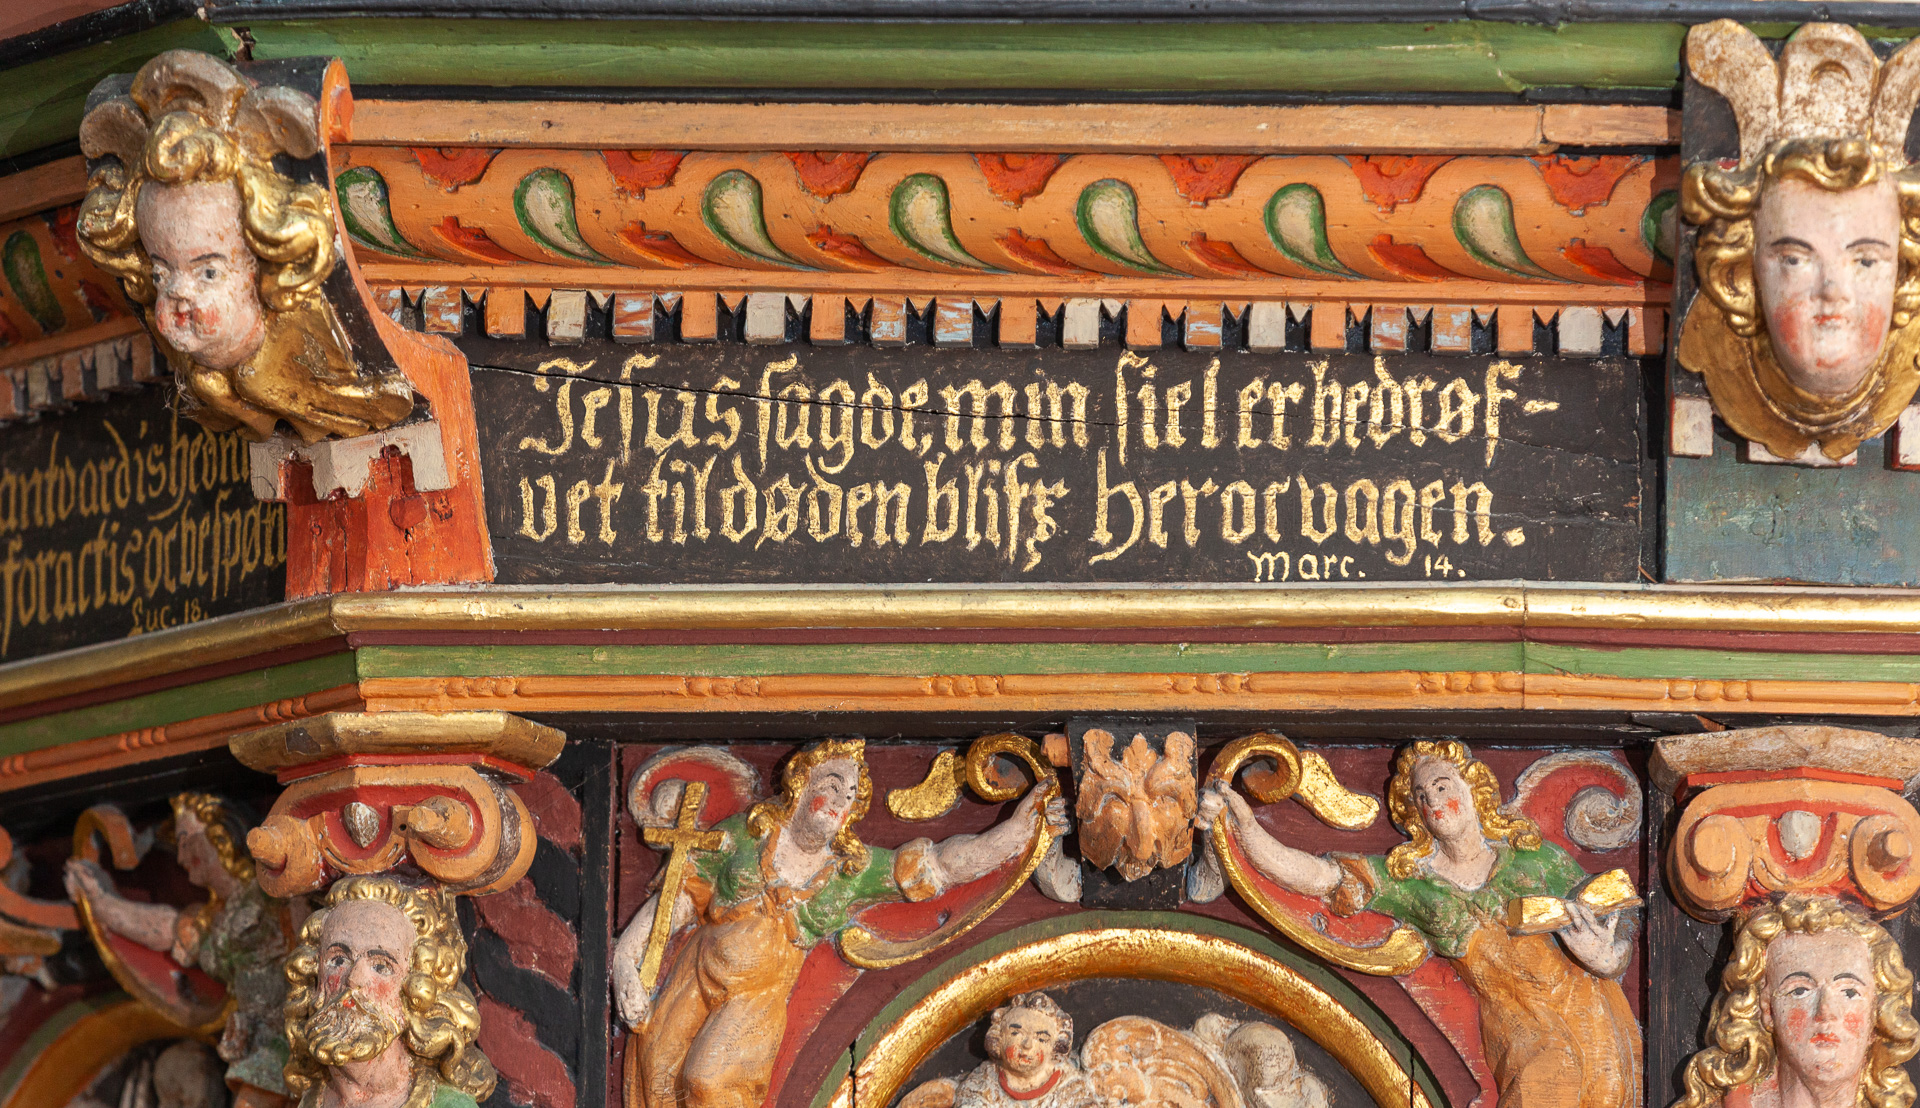 antvardis
foractis oc
Luc. 18.
Jesus sagde, min siel er bedrøf-
vet til døden blifr her oc vagen.
Marc. 14.